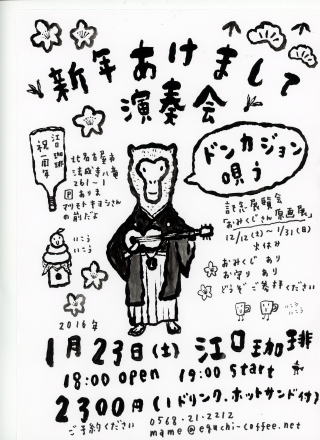 新年あけまして
演奏会
江口珈琲
祝一周年
北名古屋市
法成寺八番
261-1
Pあります
マツモトキヨシさん
の前だよ
ドンカジョン
唄う
記念展覧会
「おみくじさん原画展」
12/12(土)〜1/31(日)
火休み
おみくじ あり
お守り あり
どうぞ ご参拝ください
いこう
いこう
いこう
いこう
2016年
1月23日(土) 江口珈琲
18:00 open 19:00 start
2300円(1ドリンク、ホットサンド付)
ご予約ください
0568-21-2212
mame@eguchi-coffee.net